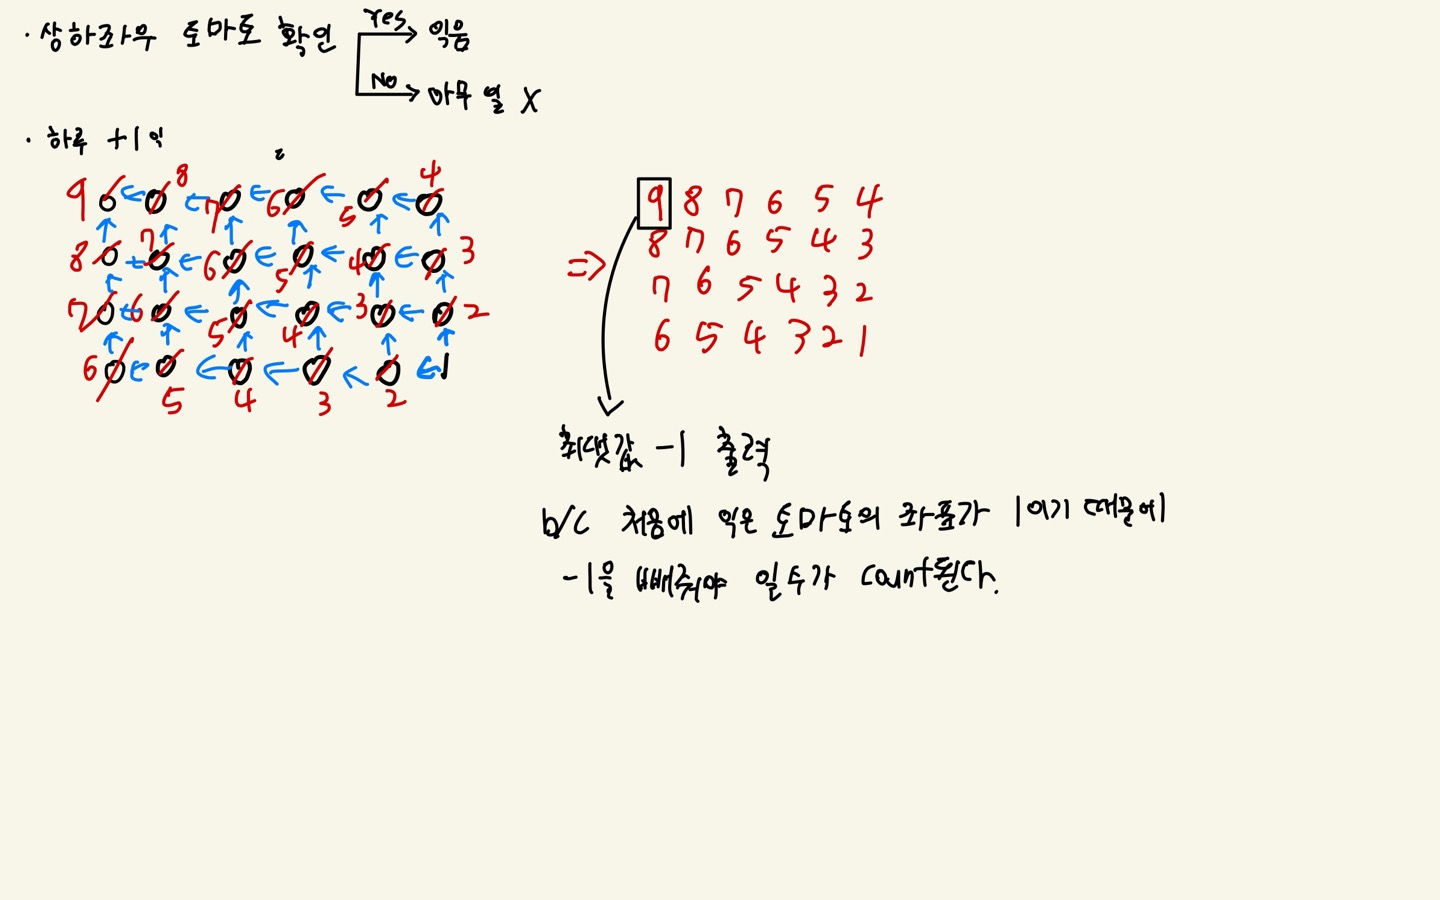 · 상하좌우 토마토 확인
Yes → 익음
No → 아무 일 X
· 하루 +1 익
9 8 7 6 5 4
8 7 6 5 4 3
7 6 5 4 3 2
6 5 4 3 2 1
=>
9 8 7 6 5 4
8 7 6 5 4 3
7 6 5 4 3 2
6 5 4 3 2 1
최댓값 -1 출력
b/c 처음에 익은 토마토의 좌표가 1이기 때문에
-1을 빼줘야 일수가 count된다.